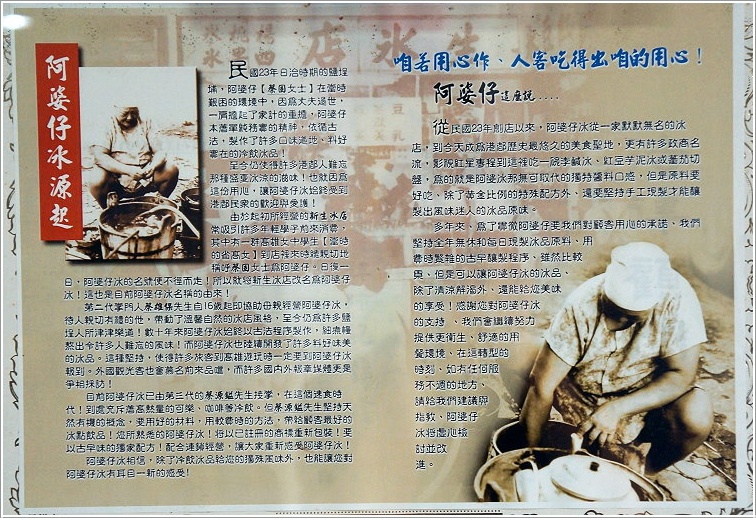 阿婆仔冰源起
民國23年日治時期的鹽埕
埔，阿婆仔【蔡
女士】在當時
艱困的環境中，因為大夫過世，
一肩擔起了家計的重擔，阿婆仔
本著單親務實的精神，依循古
法，製作了許多口味道地、料好
實在的冷飲冰品！
至今仍使得許多港都人難忘
那種盛夏沁涼的滋味！也就因為
這份用心，讓阿婆仔冰始終受到
港都民衆的歡迎與愛護！
由於起初所經營的新生冰店
常吸引許多年輕學子前來消費，
其中有一群高雄女中學生【當時
的省高女】到店裡來時總親切地
稱呼蔡
女士為阿婆仔。日復一
日，阿婆仔冰的名號便不徑而走！所以就將新生冰店改名為阿婆仔
冰！這也是目前阿婆仔冰名稱的由來！
第二代掌門人蔡雄
先生自16歲起即協助母親經營阿婆仔冰，
待人親切有禮的他，帶動了溫馨自然的冰店風格，至今仍為許多鹽
埕人所津津樂道！數十年來阿婆仔冰始終以古法程序製作，細煮慢
熬出令許多人難忘的風味！而阿婆仔冰也陸續開發了許多料好味美
的冰品。這種堅持，使得許多旅客到高雄遊玩時一定要到阿婆仔冰
報到。外國觀光客也會慕名前來品嚐，而許多國內外報章媒體更是
爭相採訪！
目前阿婆仔冰已由第三代的蔡源
先生接掌，在這個速食時
代！到處充斥著高熱量的可樂、咖啡等冷飲。但蔡源
先生堅持天
然有機的概念，要用好的材料，用較費時的方法，帶給顧客最好的
冰點飲品！您所熟悉的阿婆仔冰！將以已註冊的商標重新包裝！要
以古早味的獨家配方！配合連鎖經營，讓大家重新感受阿婆仔冰！
阿婆仔冰相信，除了冷飲冰品給您的獨殊風味外，也能讓您對
阿婆仔冰有耳目一新的感受！
咱若用心作、人客吃得出咱的用心！
阿婆仔這麼說....
從民國23年創店以來，阿婆仔冰從一家默默無名的冰
店，到今天成為港都歷史最悠久的美食聖地，更有許多政商名
流，影視紅星專程到這裡吃一碗李鹹冰、紅豆芋泥冰或蕃茄切
盤，為的就是阿婆冰那無可取代的獨特醬料口感，但是原料要
好吃，除了黃金比例的特殊配方外，還要堅持手工現製才能釀
製出風味迷人的冰品原味。
多年來、為了實徹阿婆仔要我們對顧客用心的承諾、我們
堅持全年無休和每日現製冰品原料、用
費時繁雜的古早釀製程序、雖然比較
累、但是可以讓阿婆仔冰的冰品、
除了清涼解渴外、還能給您美味
的享受！感謝您對阿婆仔冰
的支持、我們會繼續努力
提供更衛生、舒適的用
餐環境、在這轉型的
時刻、如有任何服
務不週的地方、
請給我們建議與
指教、阿婆仔
冰將虛心檢
討並改
進。